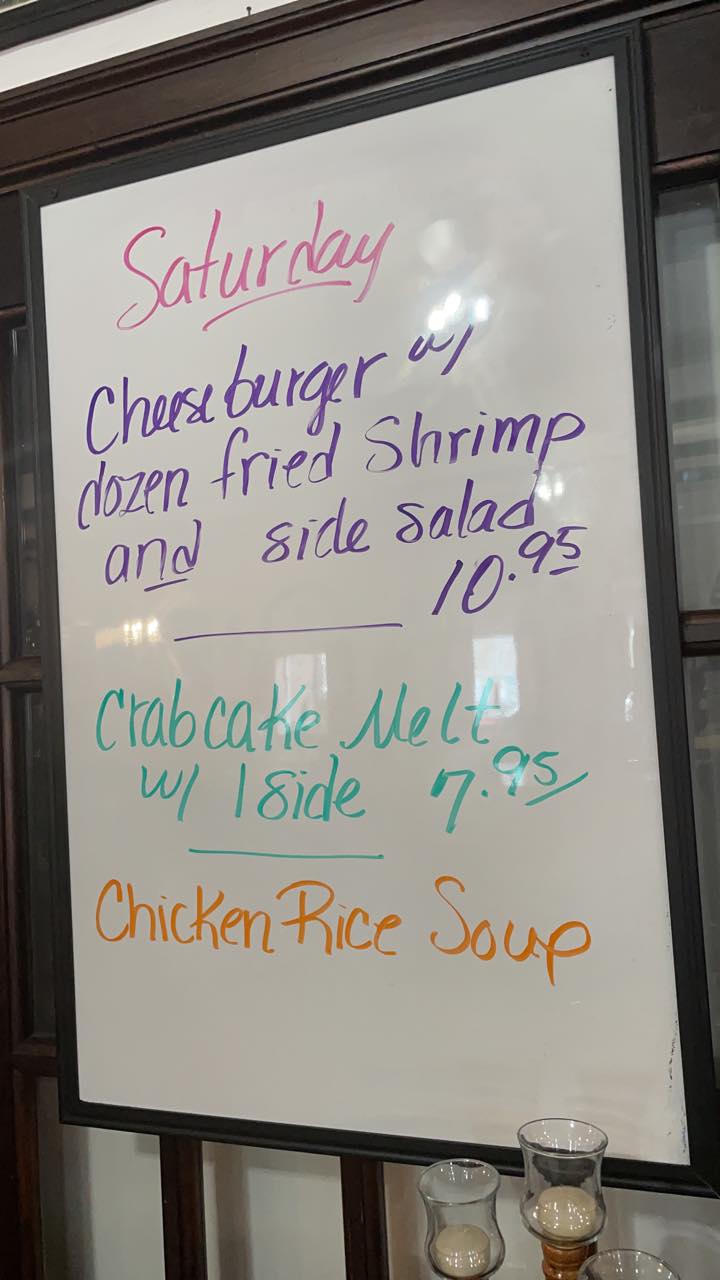 Saturday
Cheeseburger w/
dozen fried Shrimp
and side salad
10.95
Crabcake Melt
w/ 1 side 7.95
Chicken Rice Soup